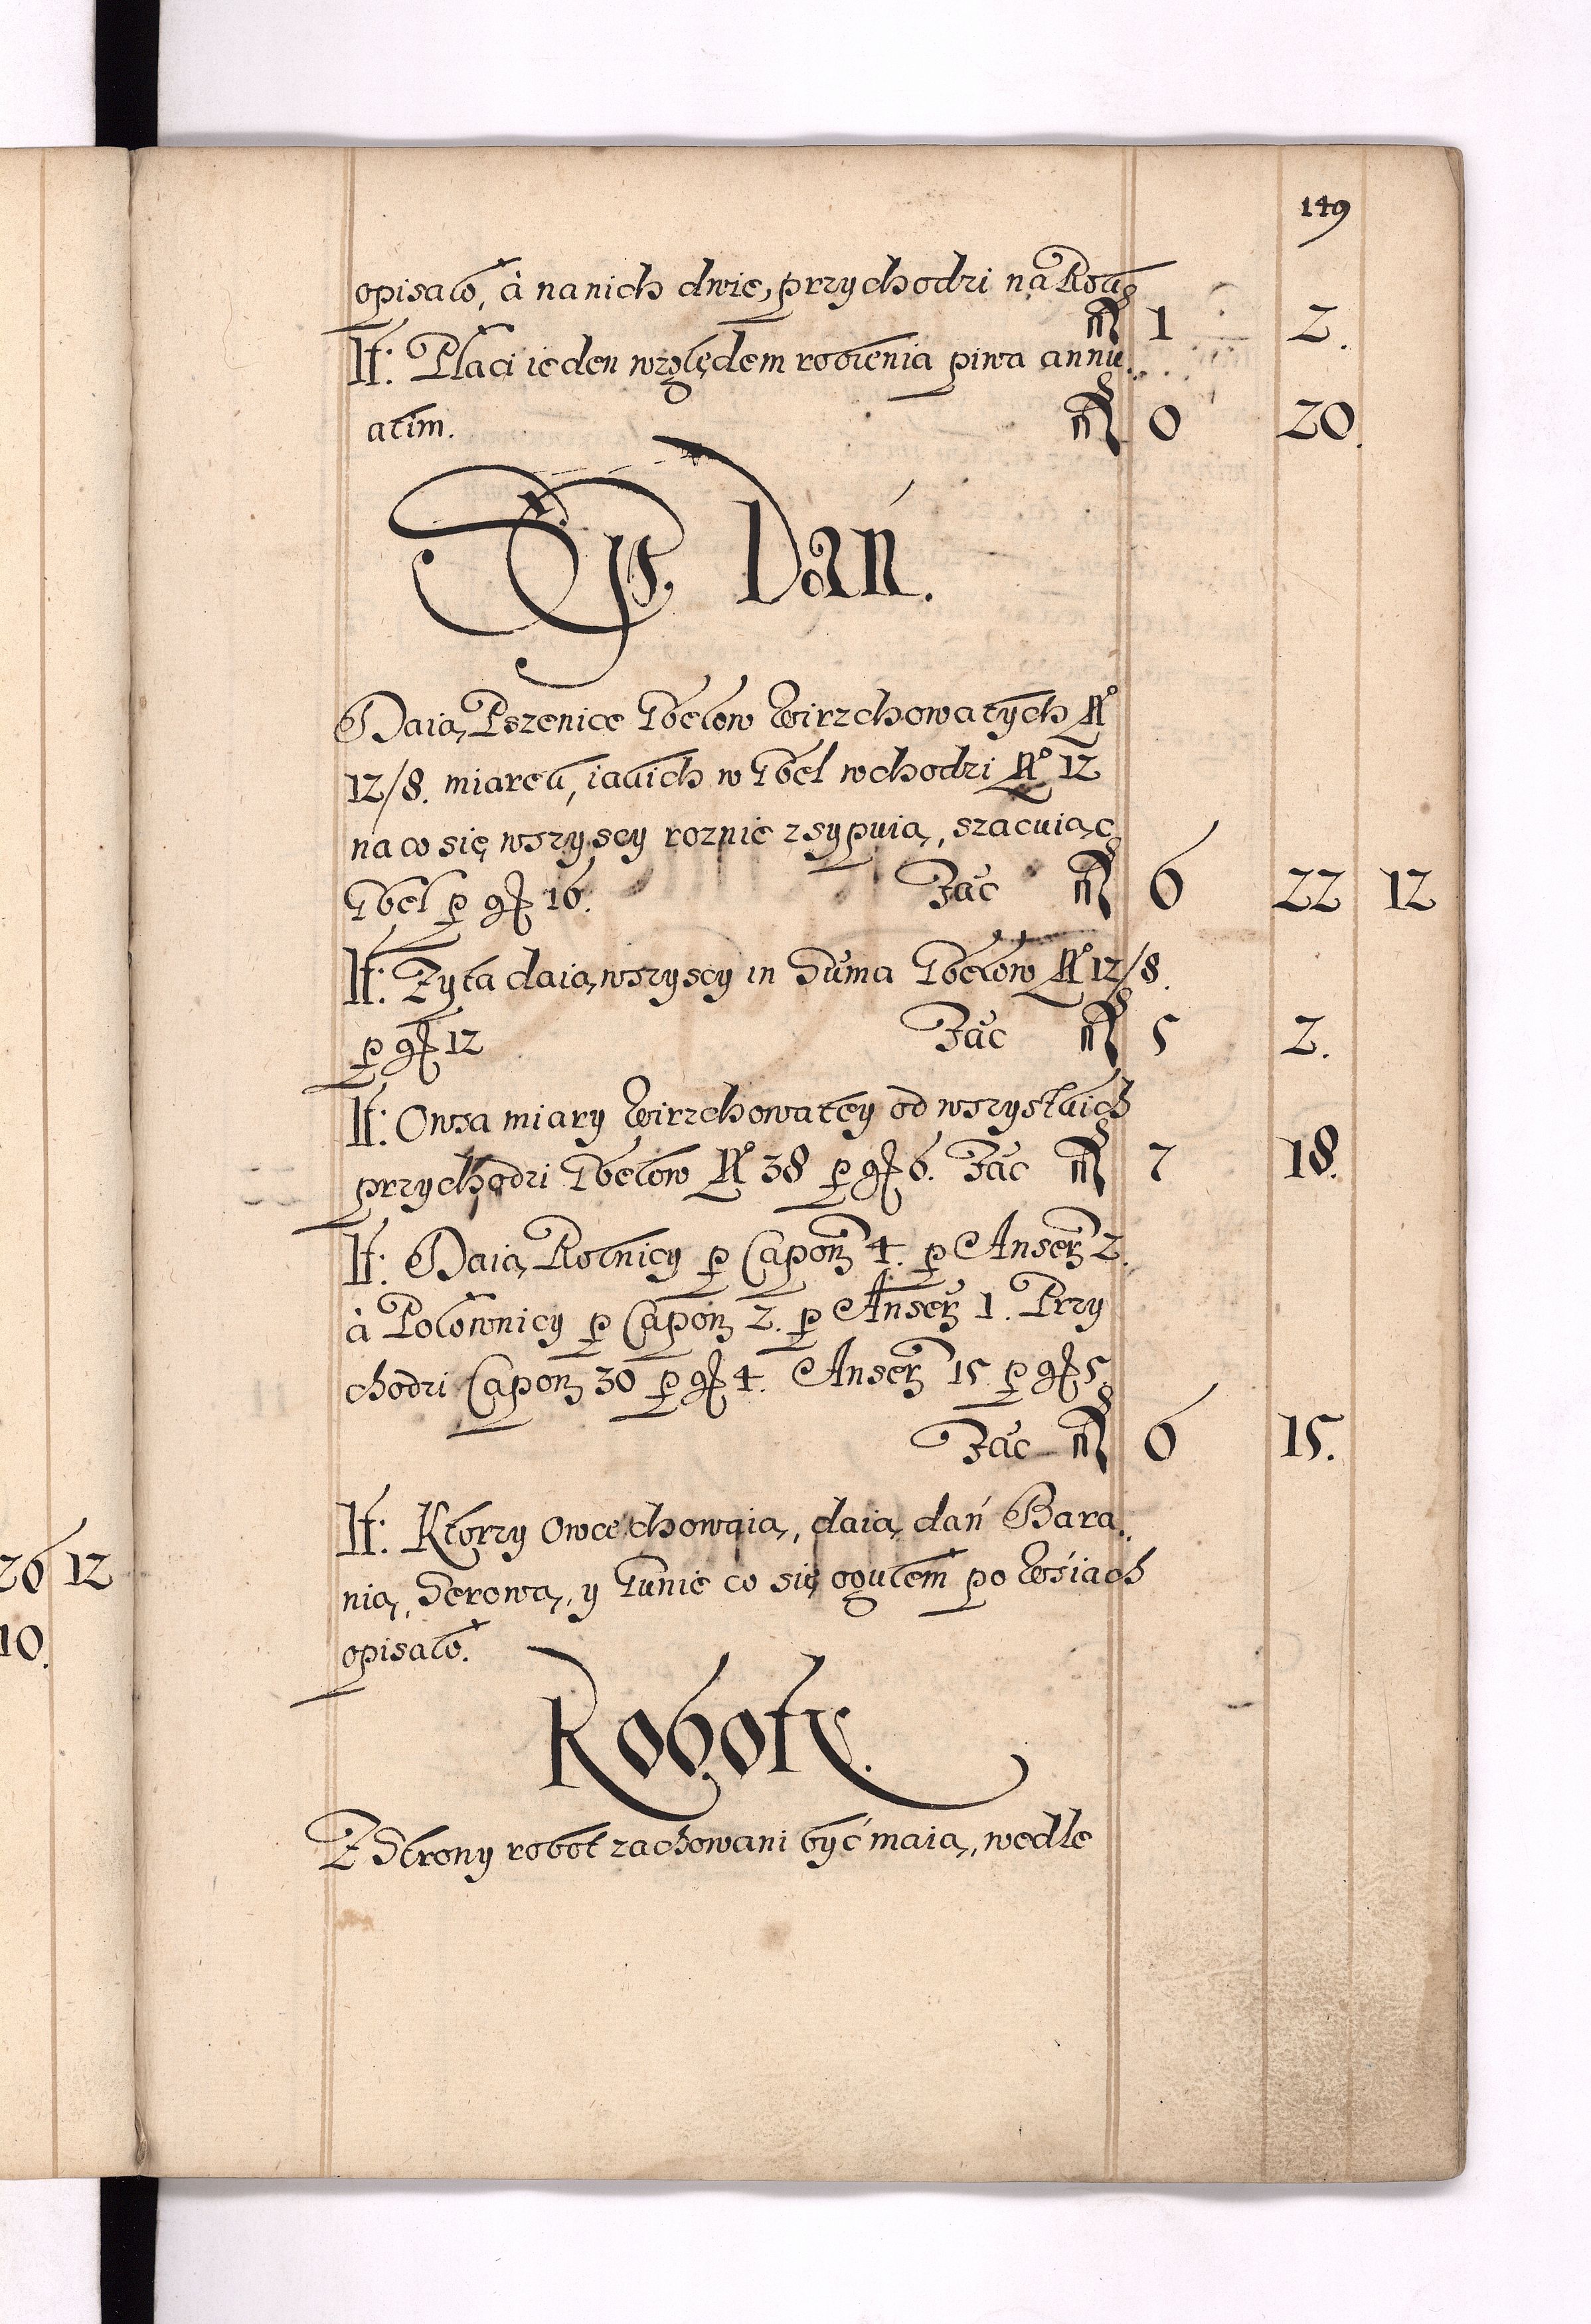 149
opisało, à na nich dwie, przychodzi na Rok
mſ 1 2.
It: Płaci ieden względem robienia piwa annu..
atim. mſ 0 20.
Dań.
Daią Pszenice Kbełow Wirzchowatych No
12/8. miarek, iakich w Kbeł wchodzi No 12
na co się wszyscy roznie zsypuią, szacuiąc
Kbeł p gſ 16. Zac mſ 6 22 12
It: Zyta daią wszyscy in Suma Kbełow No 12/8.
p gſ 12 Zac mſ 5 2.
It: Owsa miary Wirzchowatey od wszystkich
przychodzi Kbełow No 38 p gſ 6. Zac mſ 7 18.
It: Daią Rolnicy p Capon 4. p Anser 2.
à Połownicy p Capon 2. p Anser 1. Przy
chodzi Capon 30 p gſ 4. Anser 15 p gſ 5.
Zac mſ 6 15.
It: Ktorzy Owce chowaią, daią dań Bara..
nią, Serową, y Kunie co się ogułem po Wśiach
opisało.
26 12
10.
Roboty.
Z Strony robot zachowani być maią, wedle